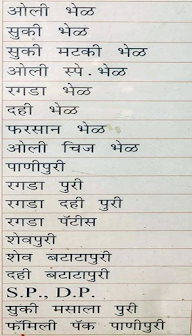 ओली भेळ
सुकी भेळ
सुकी मटकी भेळ
ओली स्पे. भेळ
रगडा भेळ
दही भेळ
फरसान भेळ
ओली चिज भेळ
पाणीपुरी
रगडा पुरी
रगडा दही पुरी
रगडा पॅटीस
शेवपुरी
शेव बटाटापुरी
दही बटाटापुरी
S.P., D.P.
सुकी मसाला पुरी
फॅमिली पॅक पाणीपुरी